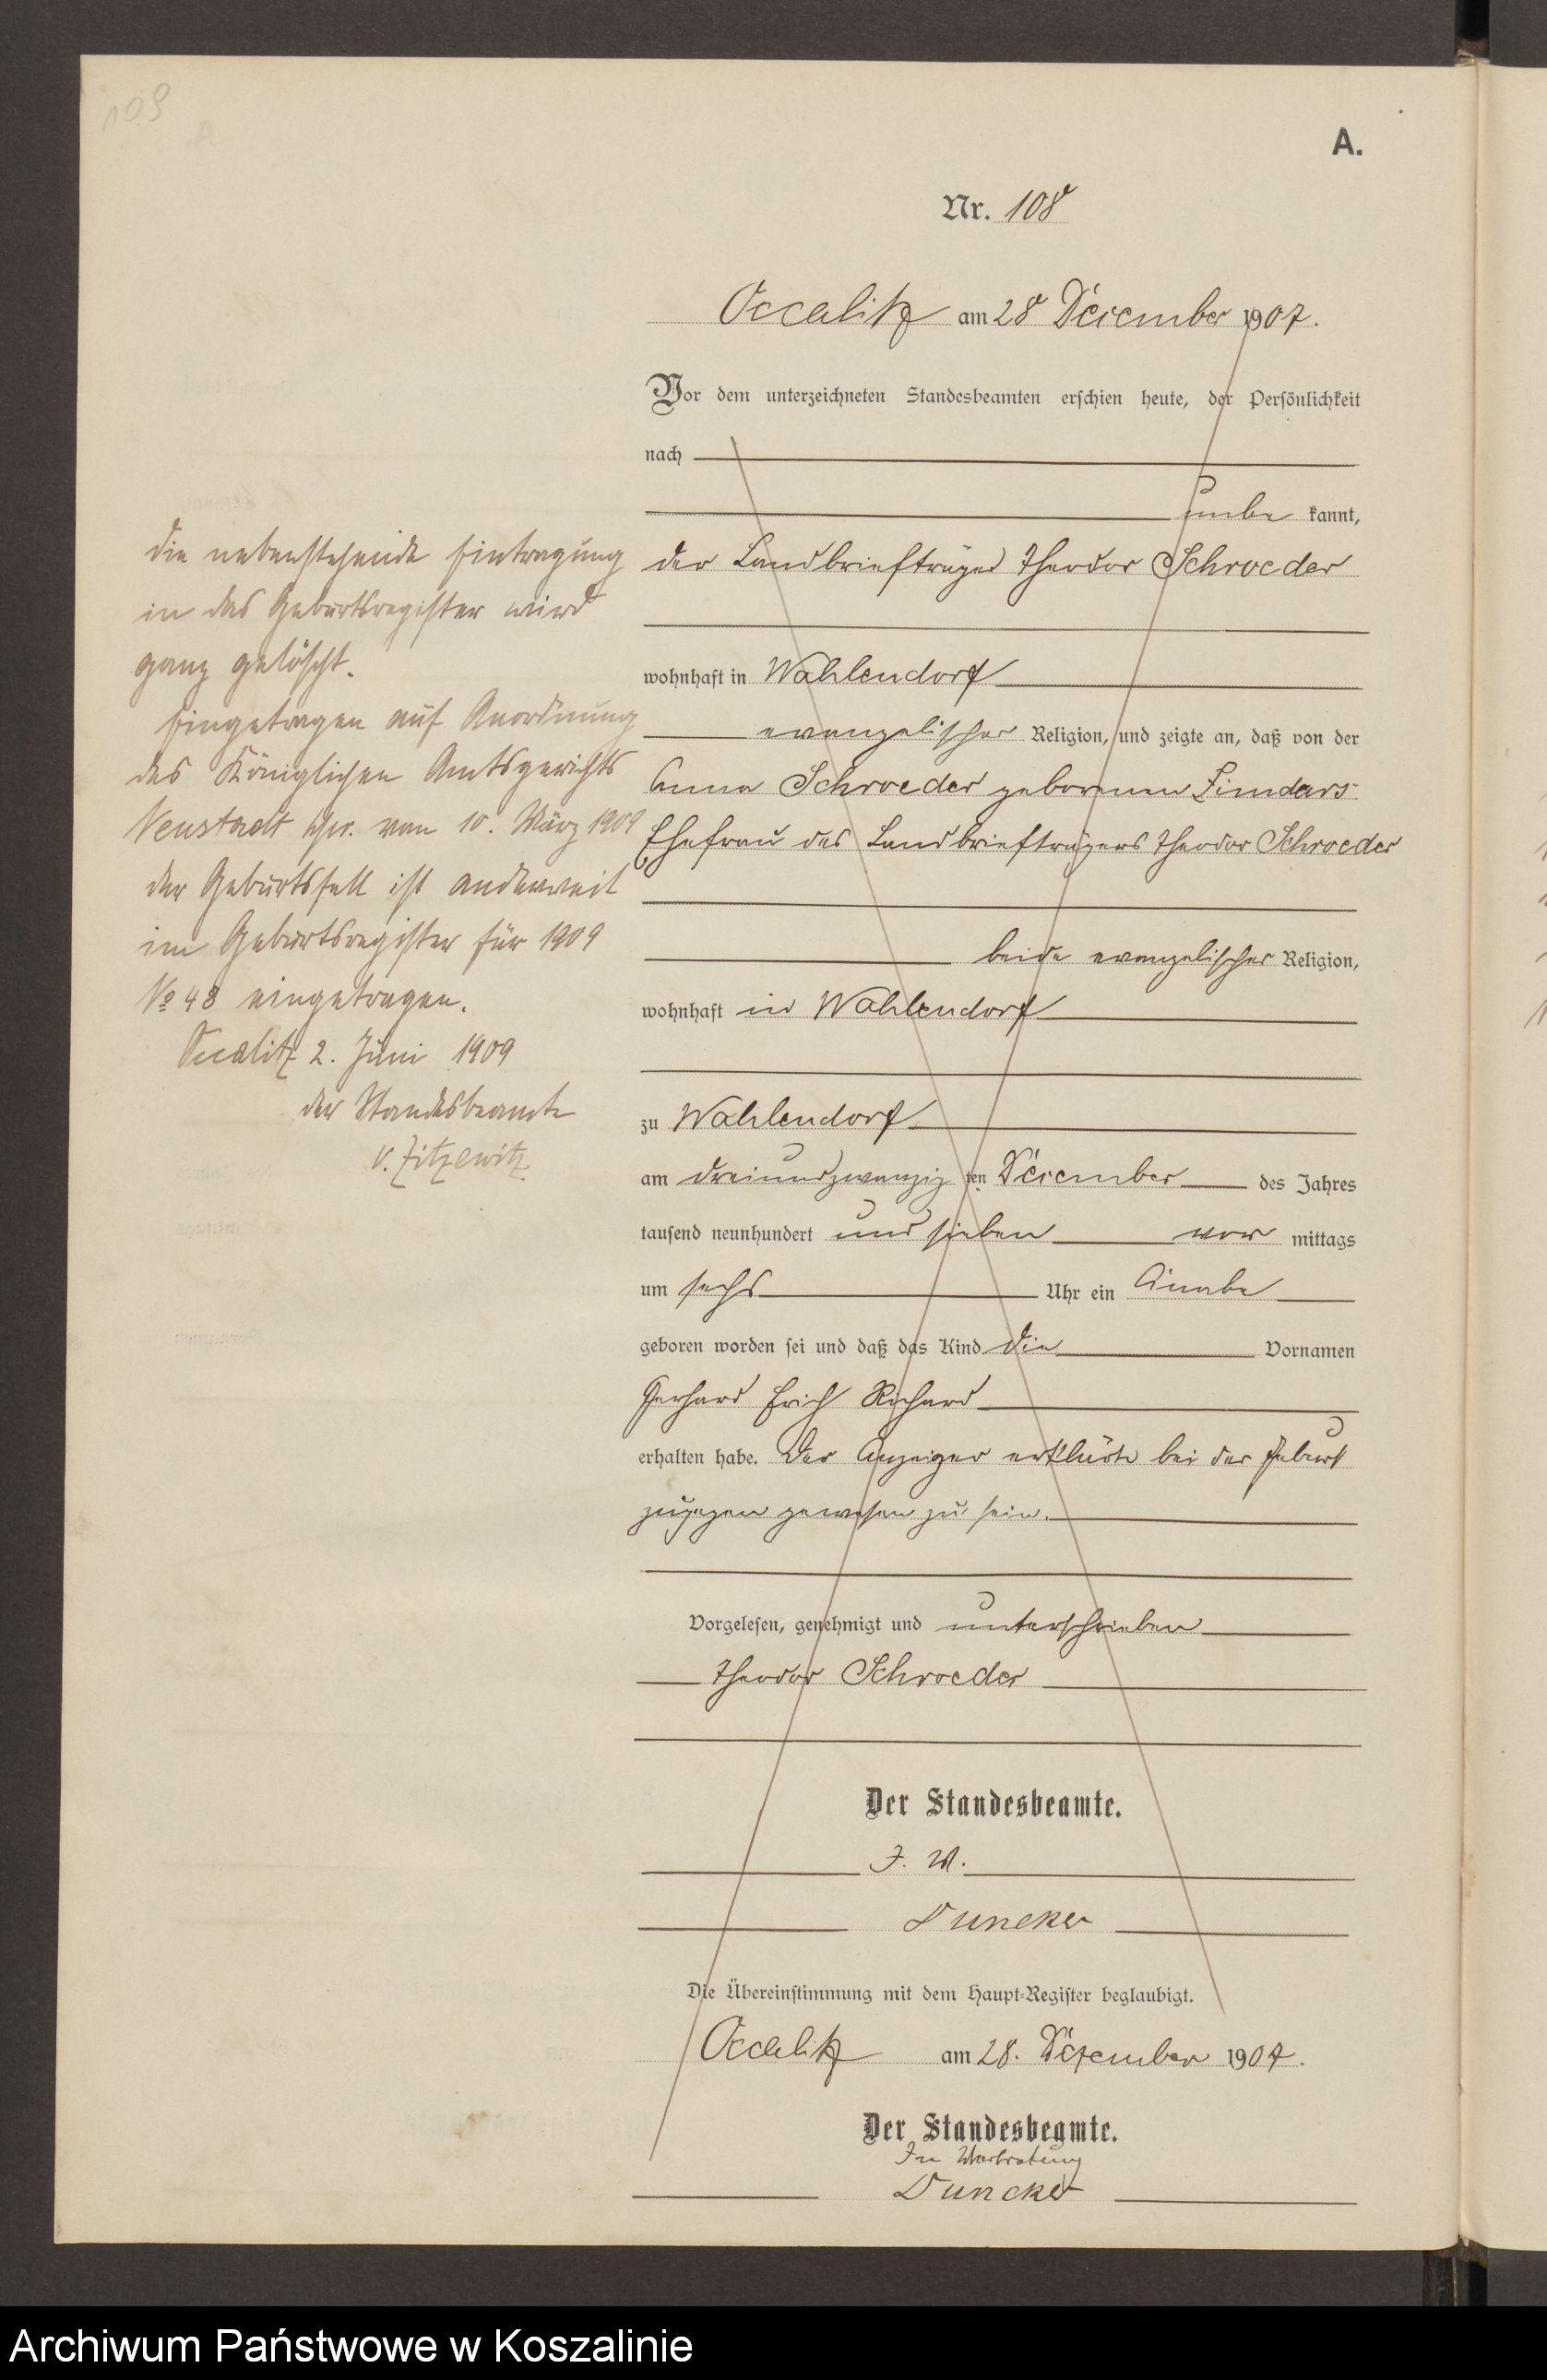 109
A.
Nr. 108
Occalitz am 28 Dezember 1907.
Vor dem unterzeichneten Standesbeamten erschien heute, der Persönlichkeit
nach
unbe kannt,
der Landbriefträger Theodor Schroeder
wohnhaft in Wahlendorf
evangelischer Religion, und zeigte an, daß von der
Anna Schroeder geborenen Lindars
Ehefrau des Landbriefträgers Theodor Schroeder
beide evangelischer Religion,
wohnhaft in Wahlendorf
zu Wahlendorf
am dreiundzwanzig ten Dezember des Jahres
tausend neunhundert und sieben vor mittags
um sechs Uhr ein Knabe
geboren worden sei und daß das Kind die Vornamen
Gerhard Erich Richard
erhalten habe. Der Anzeiger erklärte bei der Geburt
zugegen gewesen zu sein.
Vorgelesen, genehmigt und unterschrieben
Theodor Schroeder
Der Standesbeamte.
J. V.
Duncker
Die Übereinstimmung mit dem Haupt-Register beglaubigt.
Occalitz am 28. Dezember 1907.
Der Standesbeamte.
In Vertretung
Duncker
die nebenstehende Eintragung
in das Geburtsregister wird
ganz gelöscht.
Eingetragen auf Anordnung
des Königlichen Amtsgerichts
Neustadt Wpr. vom 10. März 1909
der Geburtsfall ist anderweit
im Geburtsregister für 1909
No 48 eingetragen.
Occalitz 2. Juni 1909
der Standesbeamte
v. Zitzewitz
Archiwum Państwowe w Koszalinie